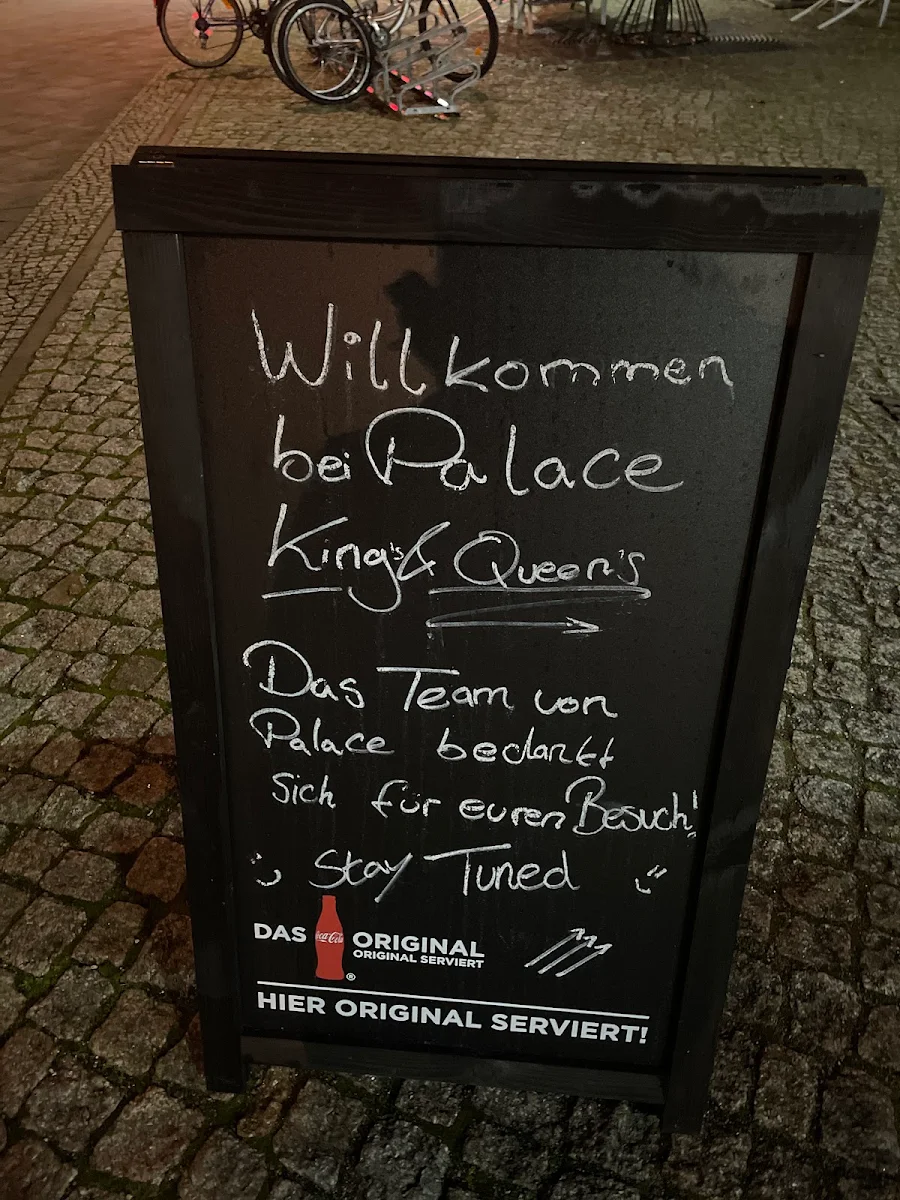 Willkommen
bei Palace
King's & Queen's
Das Team von
Palace bedankt
sich für euren Besuch!
Stay Tuned
DAS Coca-Cola ORIGINAL
ORIGINAL SERVIERT
HIER ORIGINAL SERVIERT!